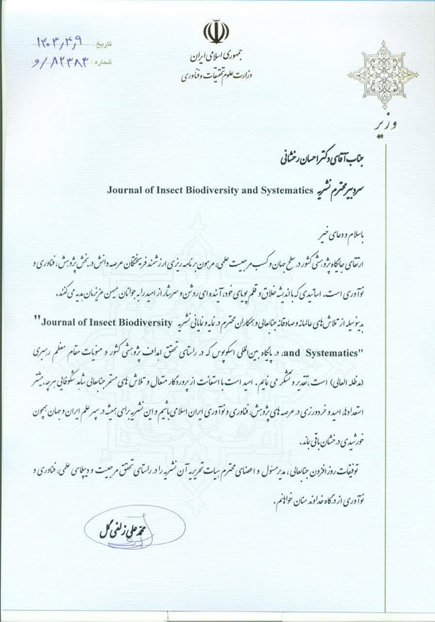 جمهوری اسلامی ایران
وزارت علوم تحقیقات و فناوری
تاریخ ۱۴۰۳،۴،۹
شماره: ۸۲۳۸۳/و
وزیر
جناب آقای دکتر احسان رخشانی
سردبیر محترم نشریه Journal of Insect Biodiversity and Systematics
باسلام و دعای خیر
ارتقای جایگاه پژوهشی کشور در سطح جهان و کسب مرجعیت علمی، مرهون برنامه ریزی ارزشمند فریختگان عرصه دانش در بخش پژوهش، فناوری و
نوآوری است. اساتیدی که با اندیشه خلاق و قلم پویای خود، آینده‌ای روشن و سرشار از امید را به جوانان میهن عزیزمان هدیه می‌کنند.
بدینوسیله از تلاش‌های عالمانه و صادقانه جنابعالی و همکاران محترم در نمایه نشریه "Journal of Insect Biodiversity
and Systematics" در پایگاه بین‌المللی اسکوپوس که در راستای تحقق اهداف پژوهشی کشور و منویات مقام معظم رهبری
(مدظله العالی) است، تقدیر و تشکر می نمایم. امید است با استعانت از پروردگار متعال و تلاش های مستمر جنابعالی شاهد شکوفایی هرچه بیشتر
استعدادها، امید و خردورزی در عرصه های پژوهش، فناوری و نوآوری ایران اسلامی باشیم و این نشریه برای همیشه در سپهر علم ایران و جهان همچون
خورشیدی درخشان باقی بماند.
توفیقات روزافزون جنابعالی، مدیرمسئول و اعضای محترم هیات تحریریه آن نشریه را در راستای تحقق مرجعیت و دیپلماسی علمی، فناوری و
نوآوری از درگاه خداوند منان خواهانم.
محمدعلی زلفی گل